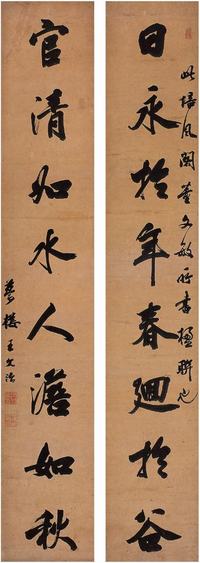 日永於年春迴於谷
此培風閣董文敏所書楹联也
官清如水人澹如秋
夢樓王文治